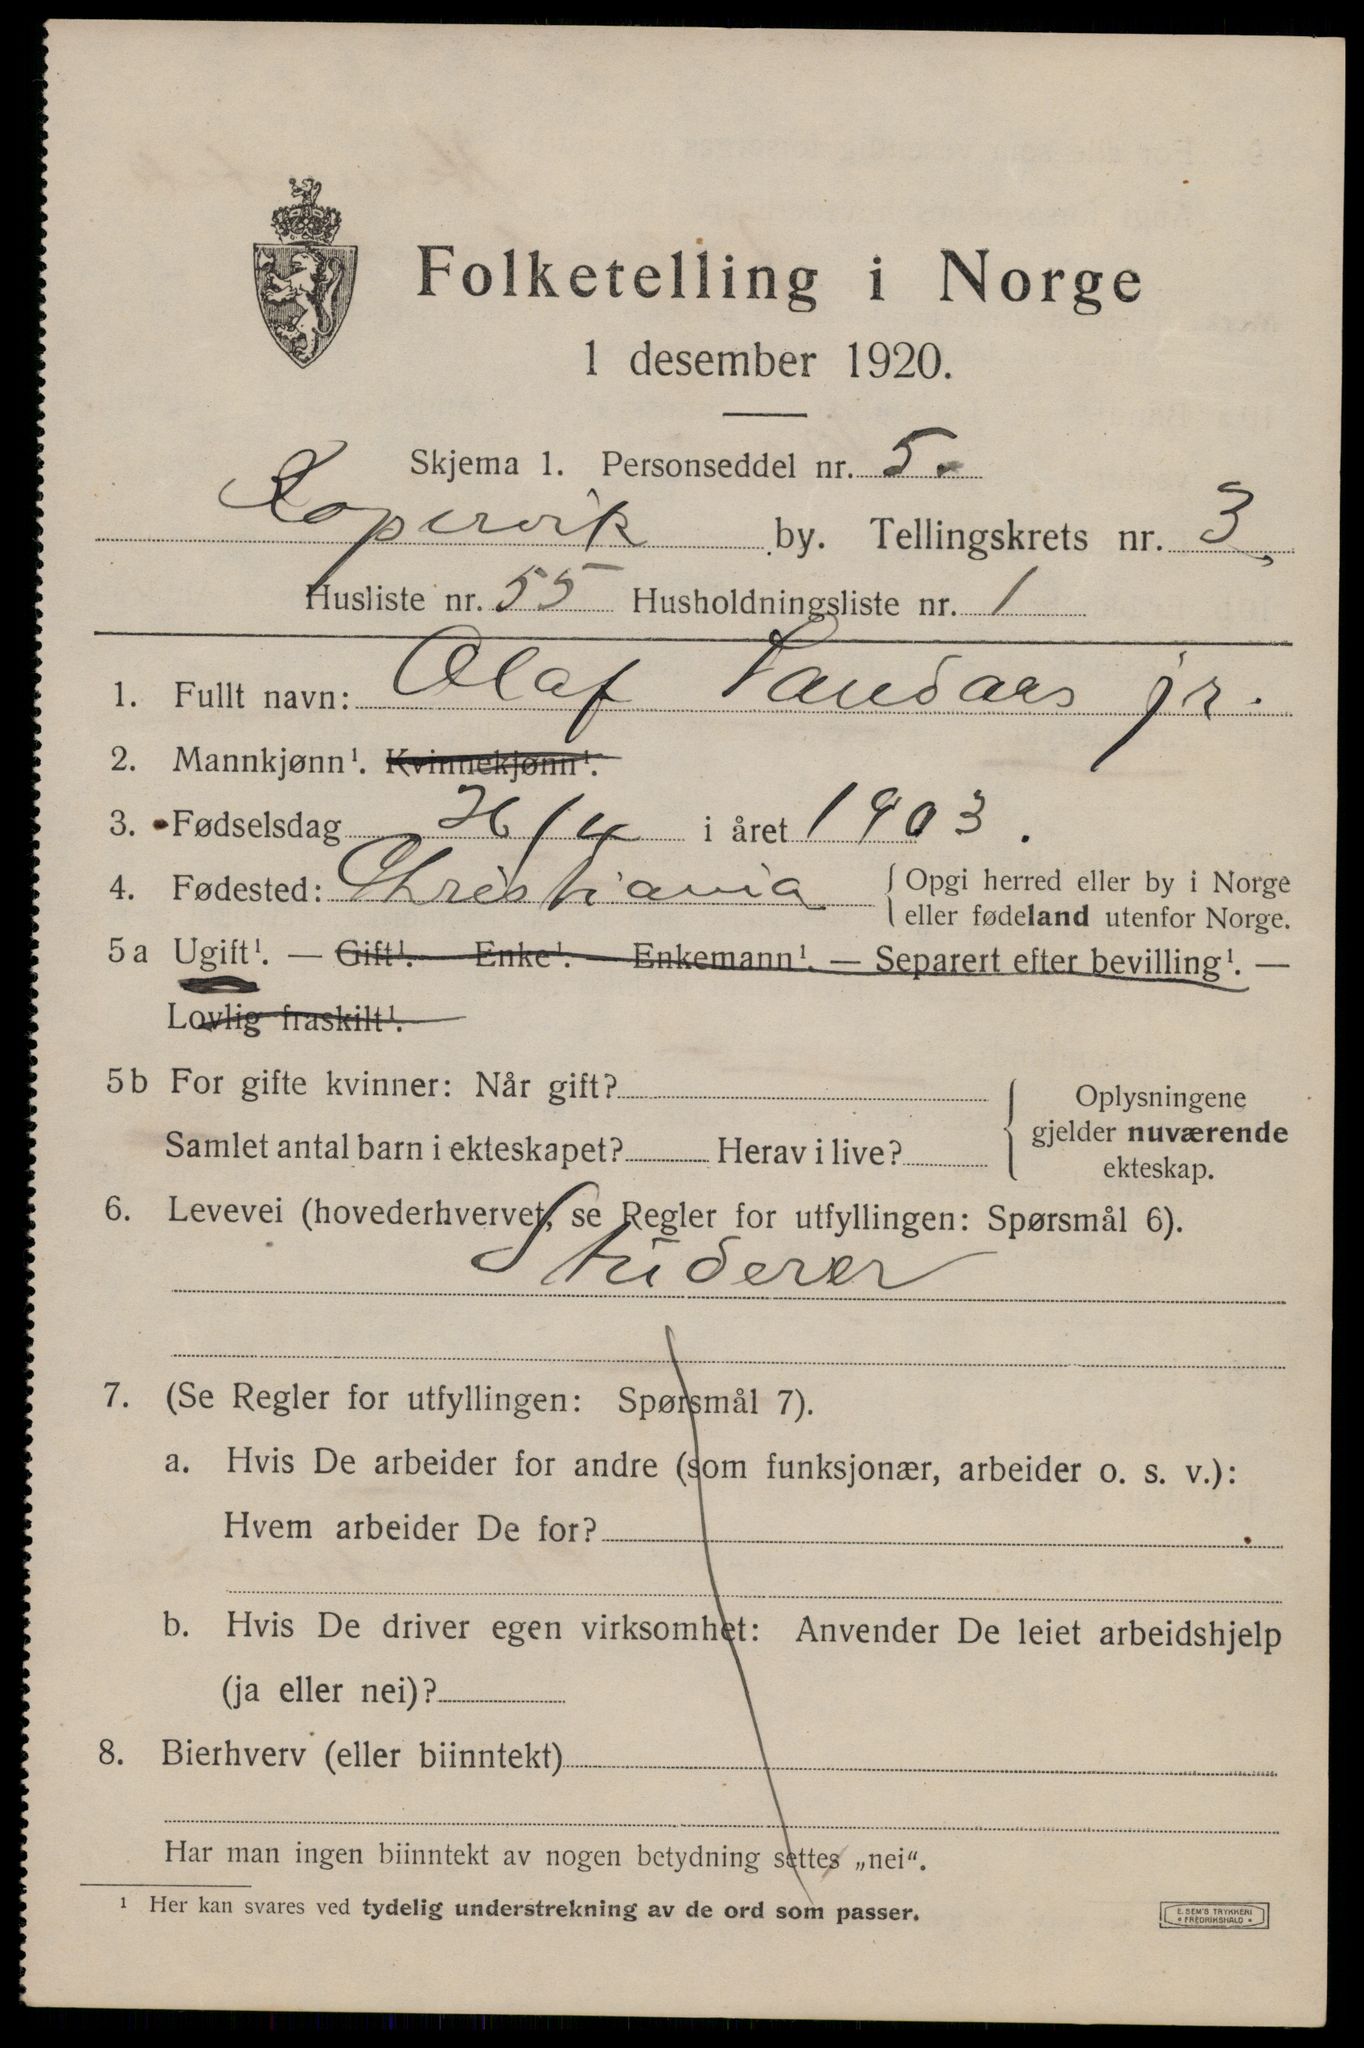 Folketelling i Norge
1 desember 1920.
Skjema 1. Personseddel nr. 5.
Kopervik by. Tellingskrets nr. 3
Husliste nr. 55 Husholdningsliste nr. 1
1. Fullt navn: Olaf jr.
2. Mannkjønn¹. Kvinnekjønn¹.
3. Fødselsdag /4 i året 1903.
4. Fødested: Christiania { Opgi herred eller by i Norge
eller fødeland utenfor Norge.
5a Ugift¹. — Gift¹. — Enke¹. — Enkemann¹. — Separert efter bevilling¹. —
Lovlig fraskilt¹.
5b For gifte kvinner: Når gift?
Samlet antal barn i ekteskapet? Herav i live?
Oplysningene
gjelder nuværende
ekteskap.
6. Levevei (hovederhvervet, se Regler for utfyllingen: Spørsmål 6).
Studerer
7. (Se Regler for utfyllingen: Spørsmål 7).
a. Hvis De arbeider for andre (som funksjonær, arbeider o. s. v.):
Hvem arbeider De for?
b. Hvis De driver egen virksomhet: Anvender De leiet arbeidshjelp
(ja eller nei)?
8. Bierhverv (eller biinntekt)
Har man ingen biinntekt av nogen betydning settes „nei“.
¹ Her kan svares ved tydelig understrekning av de ord som passer.
E. SEM'S TRYKKERI
* FREDRIKSHALD *